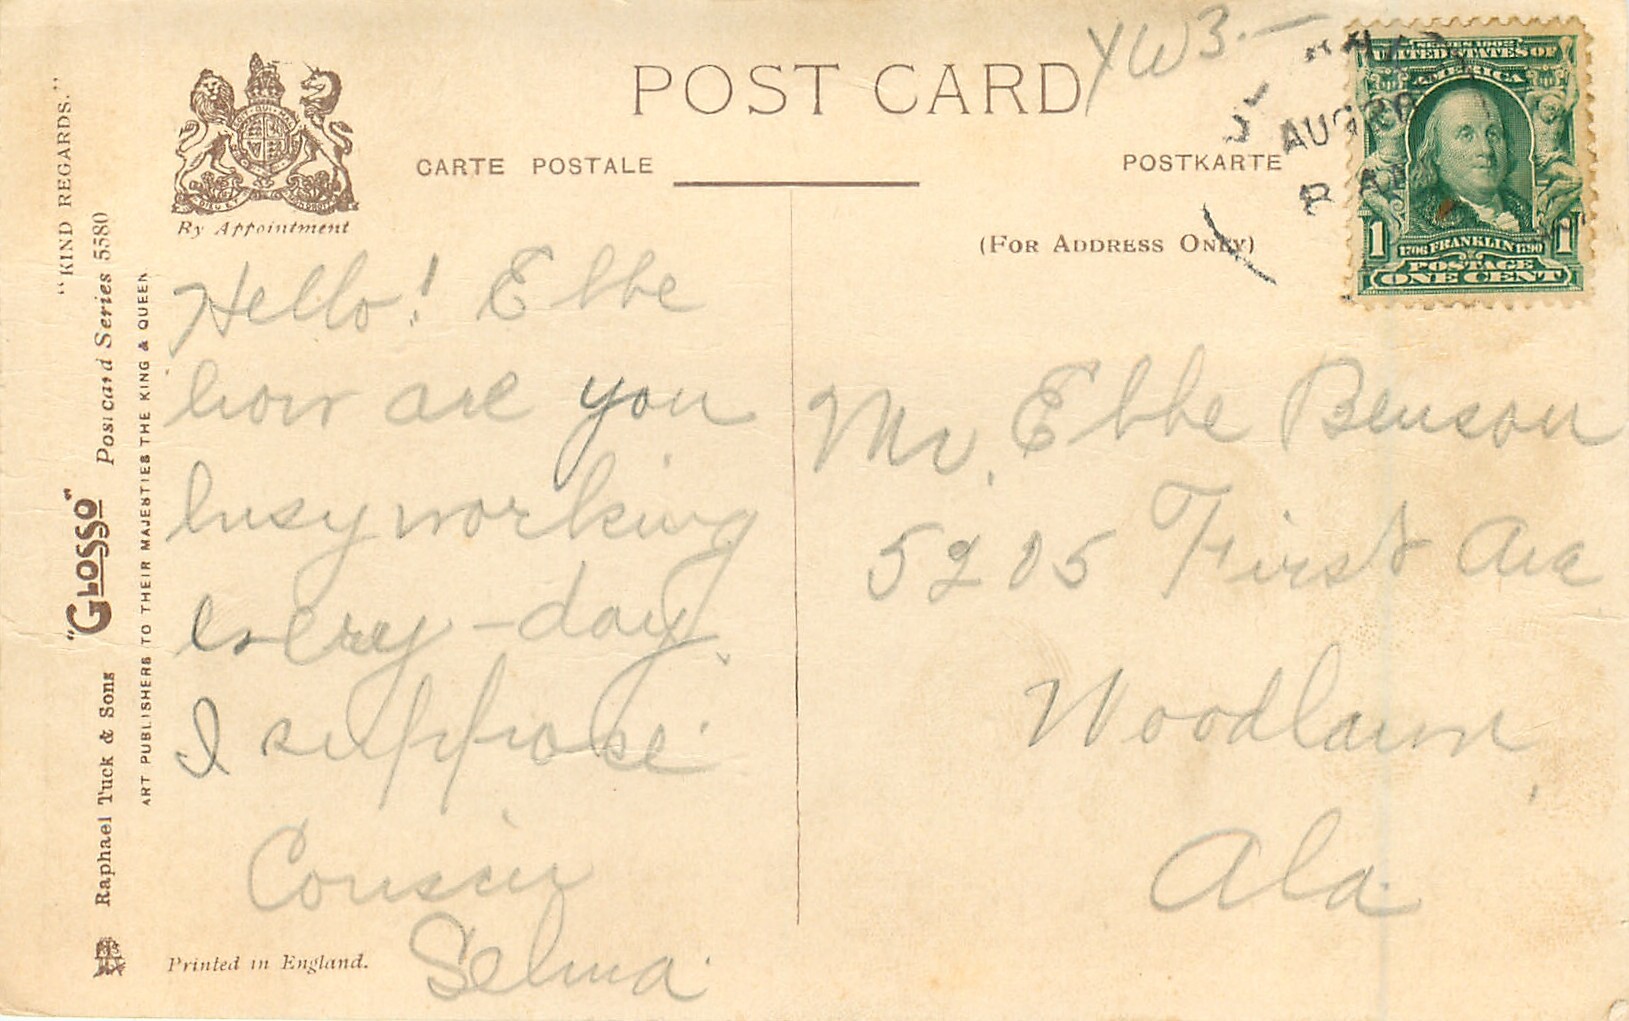 "KIND REGARDS."
"GLOSSO" Postcard Series 5580
Raphael Tuck & Sons
ART PUBLISHERS TO THEIR MAJESTIES THE KING & QUEEN
DIEU ET
By Appointment
POST CARD
CARTE POSTALE
POSTKARTE
(FOR ADDRESS ONLY)
YW3.—
AUG
SERIES 1902
UNITED STATES OF
AMERICA
1 1706 FRANKLIN 1790 1
POSTAGE
ONE CENT
Hello! Ebbe
how are you
busy working
every-day
I suppose.
Cousin
Selma.
Mr. Ebbe Benson
5205 First Ave
Woodlawn,
Ala.
Printed in England.